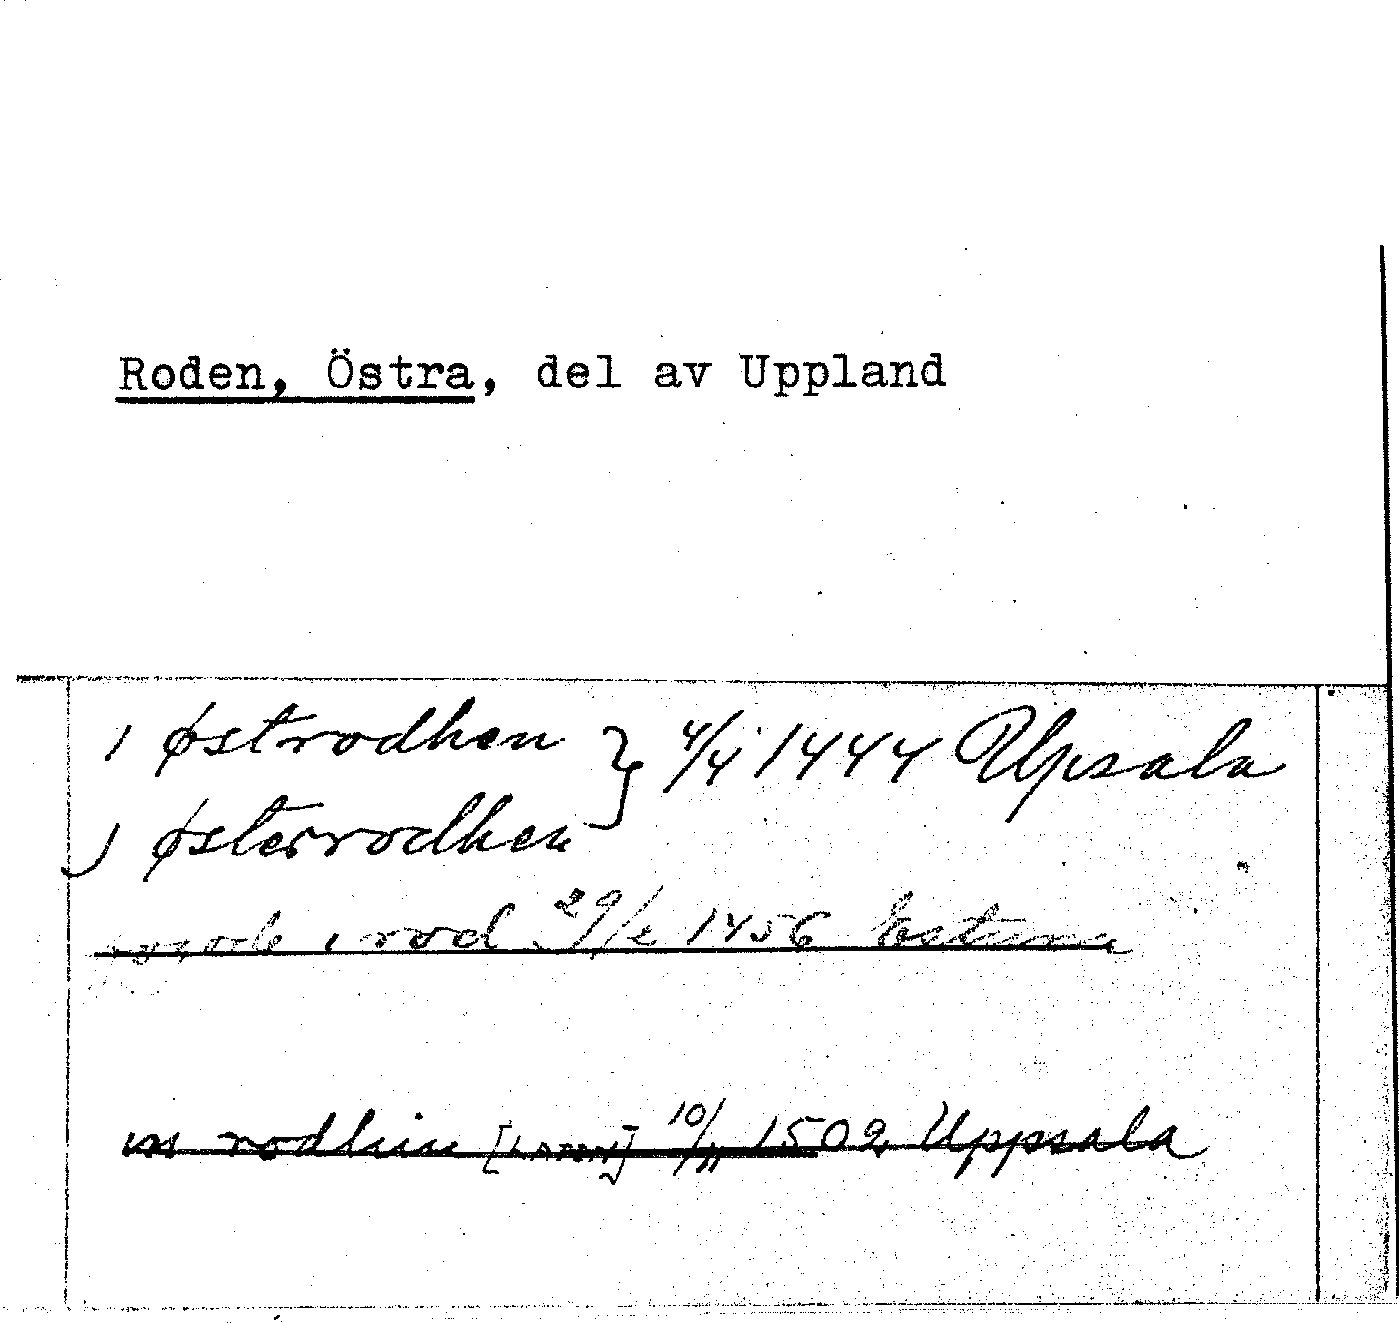 Roden, Östra, del av Uppland
i østrodhen } 4/4 1444 Upsala
j østerrodhen
i rod 29/2 1456 Estuna
in rodhin 10/11 1502 Uppsala